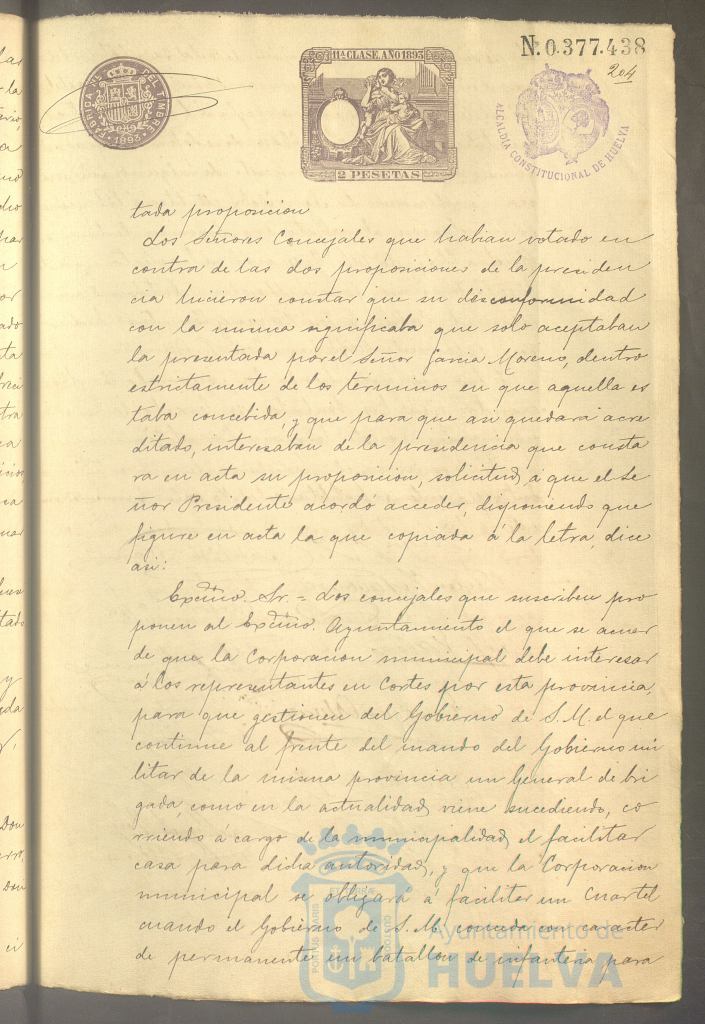 N.º 0.377.438
204
FÁBRICA DEL TIMBRE
1893
11ª CLASE. AÑO 1893
2 PESETAS
ALCALDIA CONSTITUCIONAL DE HUELVA
tada proposicion
Los Señores Concejales que habian votado en
contra de las dos proposiciones de la presiden
cia hicieron constar que su disconformidad
con la misma significaba que solo aceptaban
la presentada por el Señor Garcia Moreno, dentro
estrictamente de los términos en que aquella es
taba concebida, y que para que asi quedara acre
ditado, interesaban de la presidencia que consta
ra en acta su proposicion, solicitud á que el Se
ñor Presidente acordó acceder, disponiendo que
figure en acta la que copiada á la letra, dice
asi:
Excmo. Sr. = Los concejales que suscriben pro
ponen al Excmo. Ayuntamiento el que se acuer
de que la Corporacion municipal debe interesar
á los representantes en Cortes por esta provincia,
para que gestionen del Gobierno de S. M. el que
continue al frente del mando del Gobierno mi
litar de la misma provincia un General de bri
gada, como en la actualidad viene sucediendo, co
rriendo á cargo de la municipalidad el facilitar
casa para dicha autoridad, y que la Corporacion
municipal se obligará á facilitar un Cuartel
cuando el Gobierno de S. M. conceda con caracter
de permanente un batallon de infanteria para
Ayuntamiento de
HUELVA
PORTUS MARIS
ET TERRAE
CUSTODIA